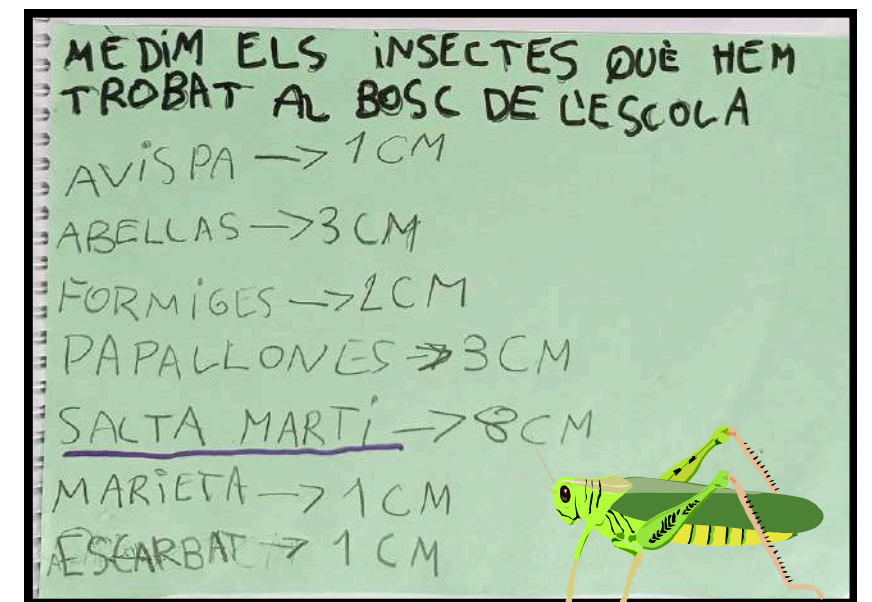 MÈDiM ELS iNSECTES QUÈ HEM
TROBAT AL BOSC DE L'ESCOLA
AViSPA —> 1 CM
ABELLAS —> 3 CM
FORMiGES —> 2 CM
PAPALLONES —> 3 CM
SALTA MARTi —> 8 CM
MARiETA —> 1 CM
ESCARBAT —> 1 CM